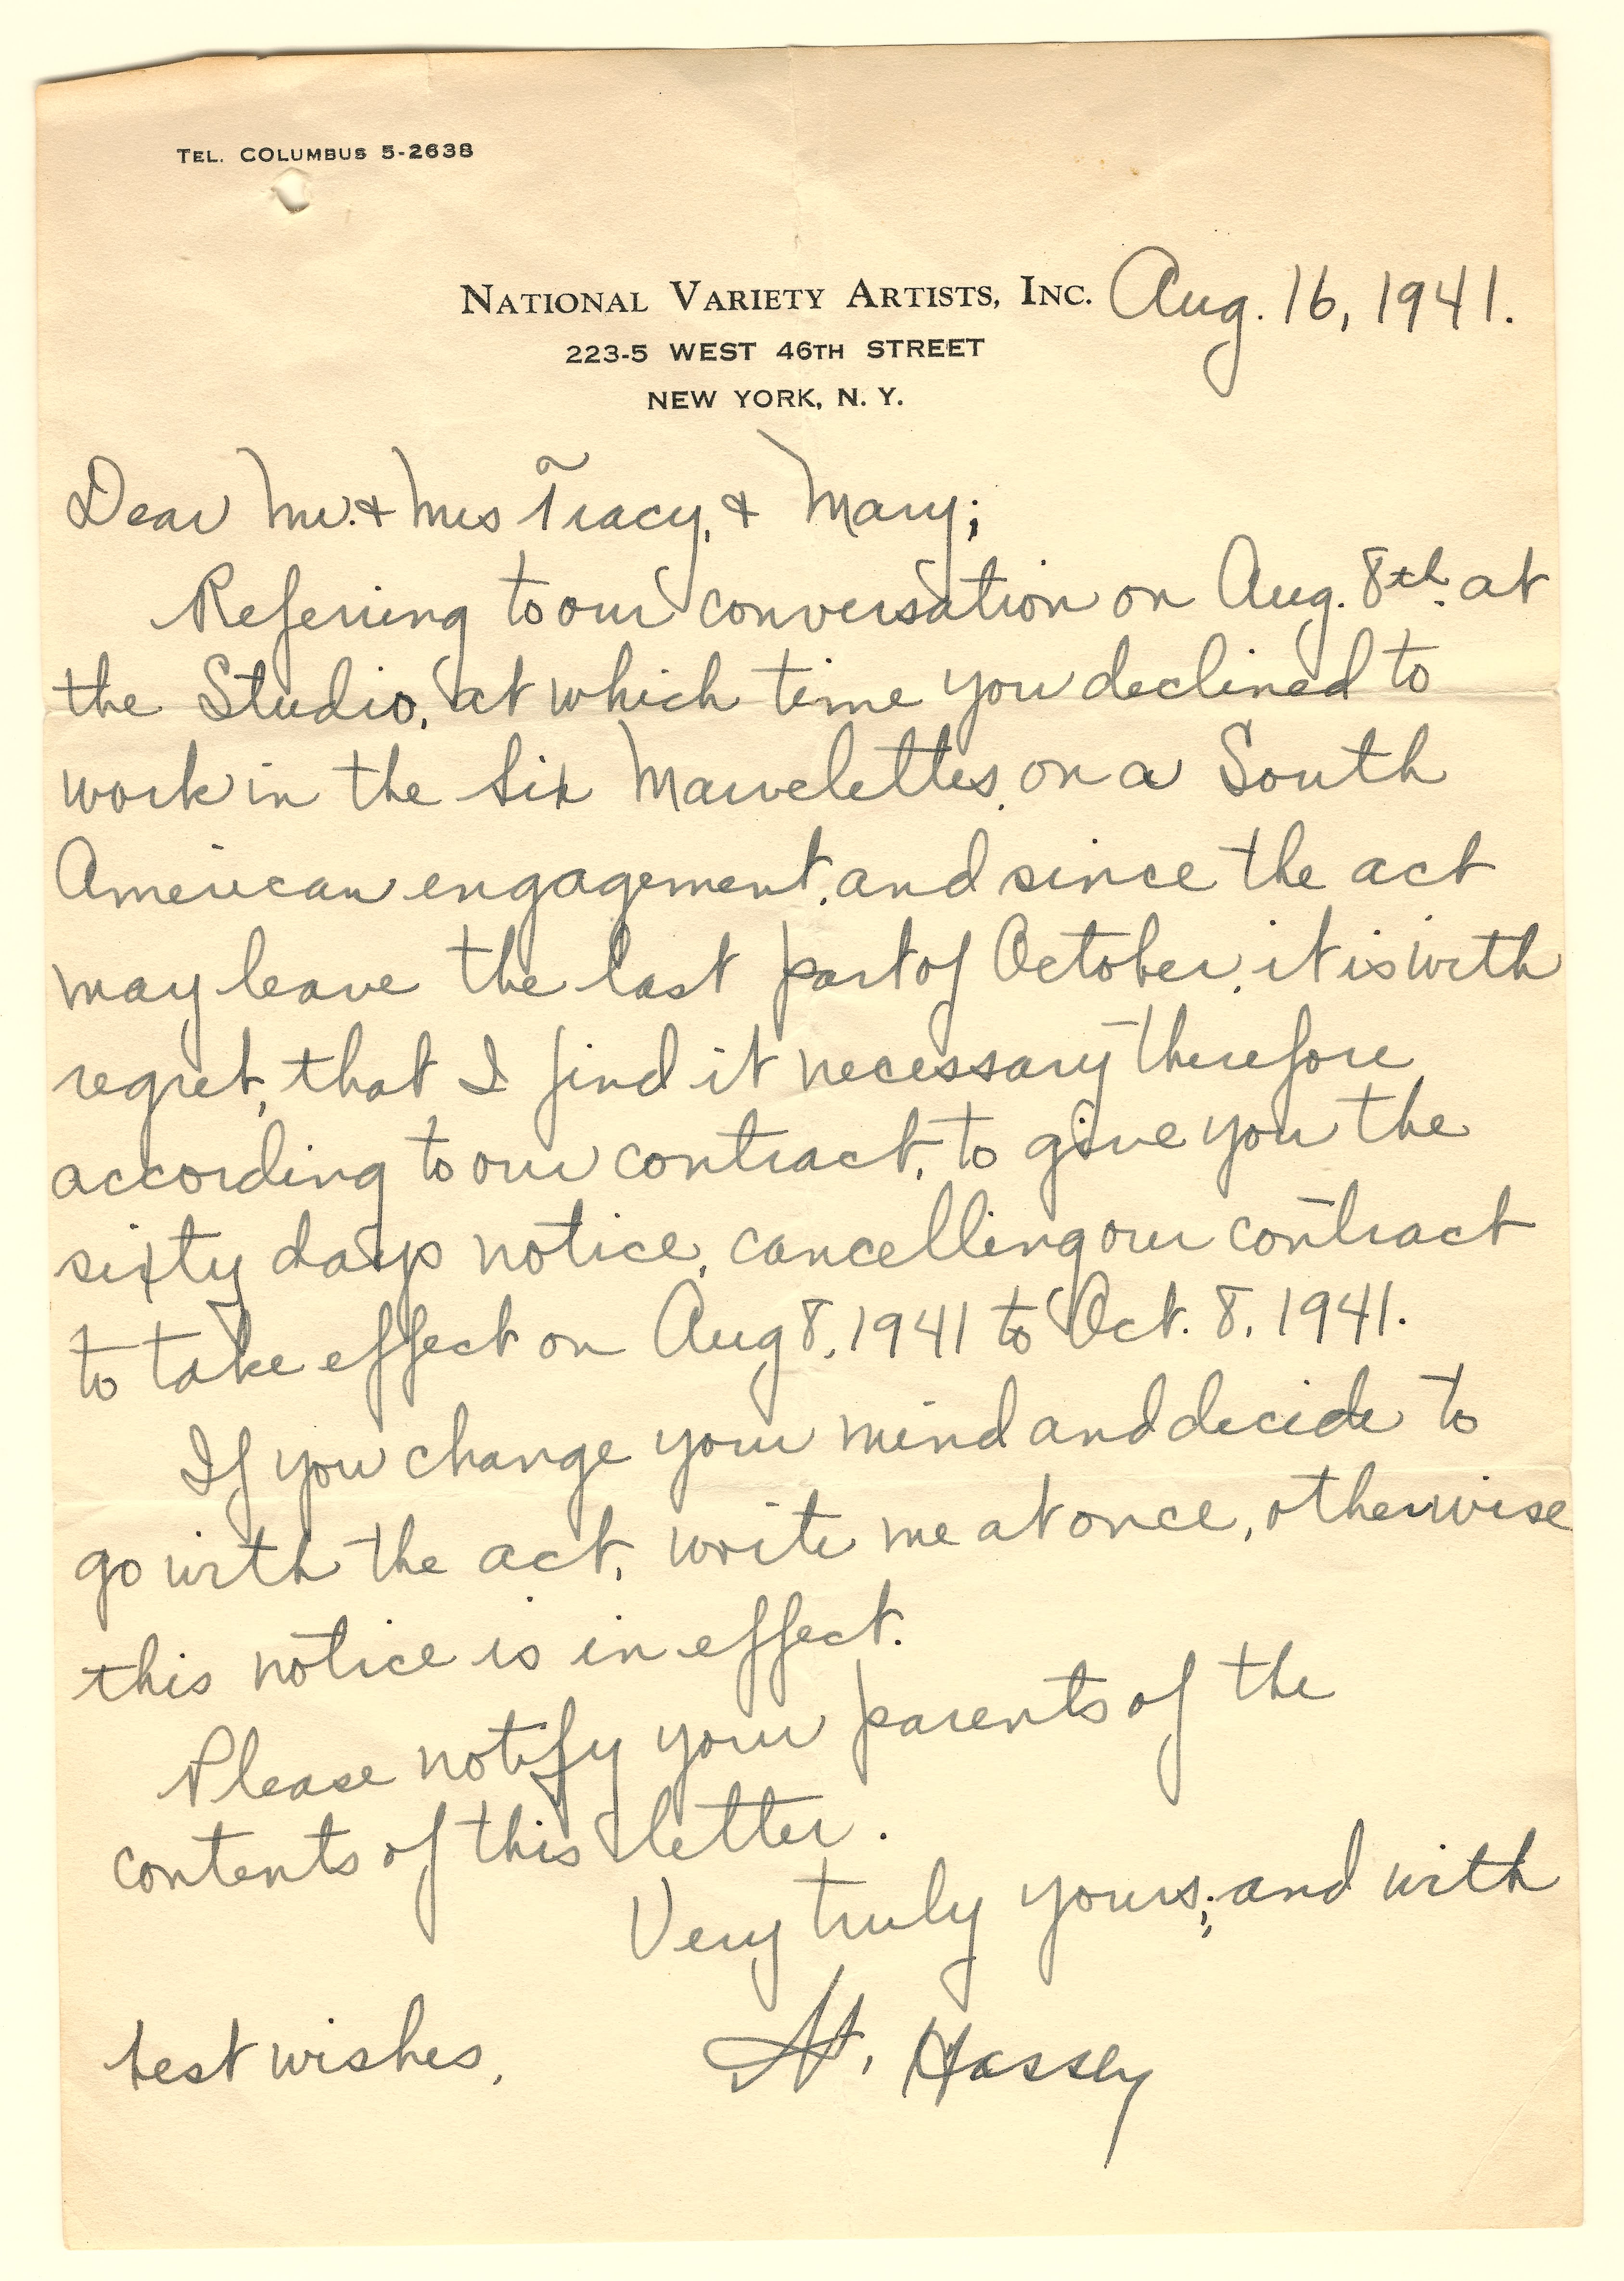 TEL. COLUMBUS 5-2638
NATIONAL VARIETY ARTISTS, INC. Aug. 16, 1941.
223-5 WEST 46TH STREET
NEW YORK, N. Y.
Dear Mr. & Mrs Tracy, & Mary;
Referring to our conversation on Aug. 8th. at
the Studio, at which time you declined to
work in the Six Marvelettes, on a South
American engagement, and since the act
may leave the last part of October, it is with
regret, that I find it necessary therefore
according to our contract, to give you the
sixty days notice, cancelling our contract
to take effect on Aug 8, 1941 to Oct. 8, 1941.
If you change your mind and decide to
go with the act, write me at once, otherwise
this notice is in effect.
Please notify your parents of the
contents of this letter.
Very truly yours; and with
best wishes, A. Hassey